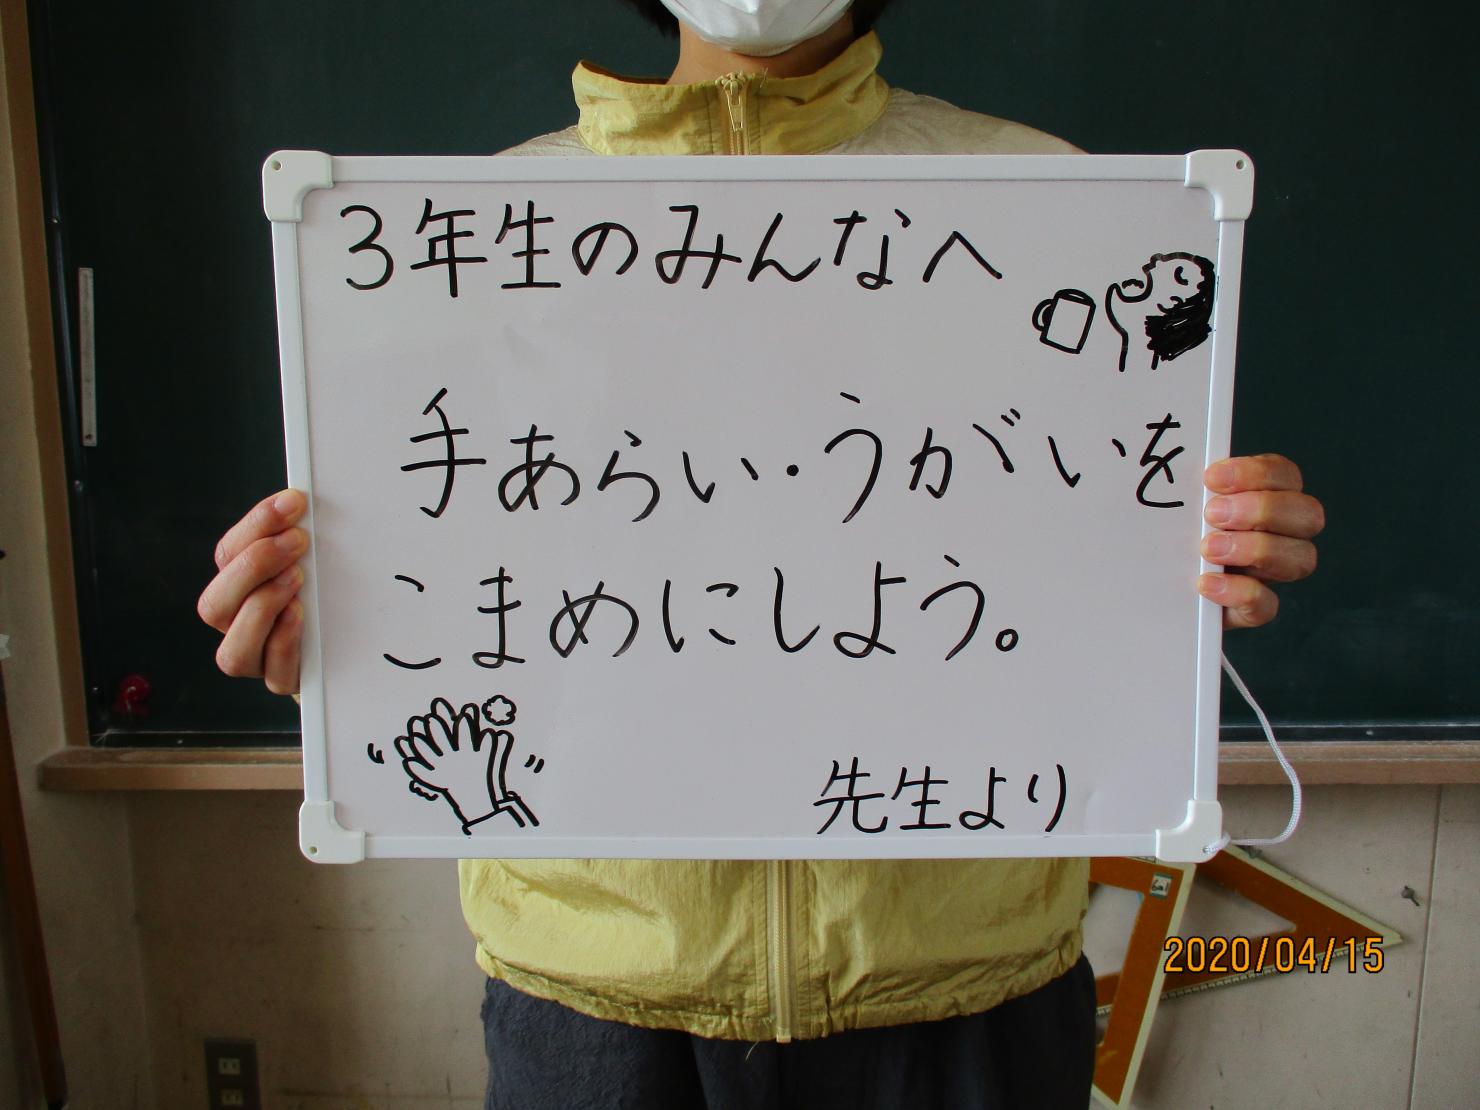 3年生のみんなへ
手あらい・うがいを
こまめにしよう。
先生より
2020/04/15